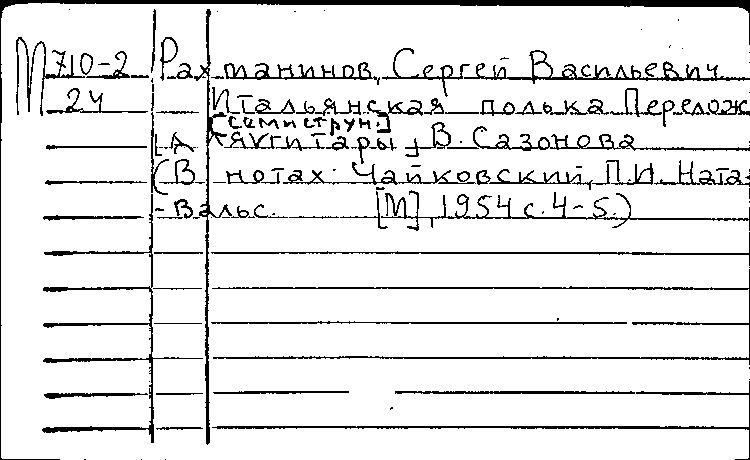 М 710-2 Рахманинов, Сергей Васильевич
24 Итальянская полька Перелож
[семиструн.]
[для гитары] В. Сазонова
(В нотах: Чайковский, П.И. Ната-
-Вальс. [М], 1954 с. 4-5.)